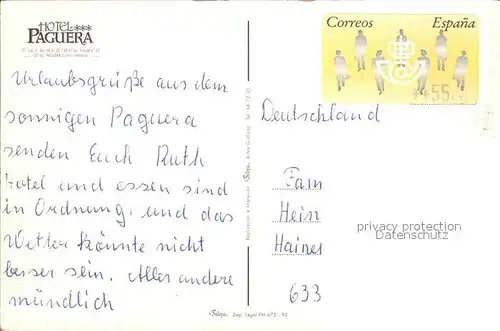 HOTEL ***
PAGUERA
Correos España
**55
Urlaubsgrüße aus dem
sonnigen Paguera
senden Euch Ruth
Hotel und essen sind
in Ordnung, und das
Wetter könnte nicht
besser sein. Alles andere
mündlich
Deutschland
Fam
Hein
Haines
633
privacy protection
Datenschutz
Dep. Legal PM-675-93